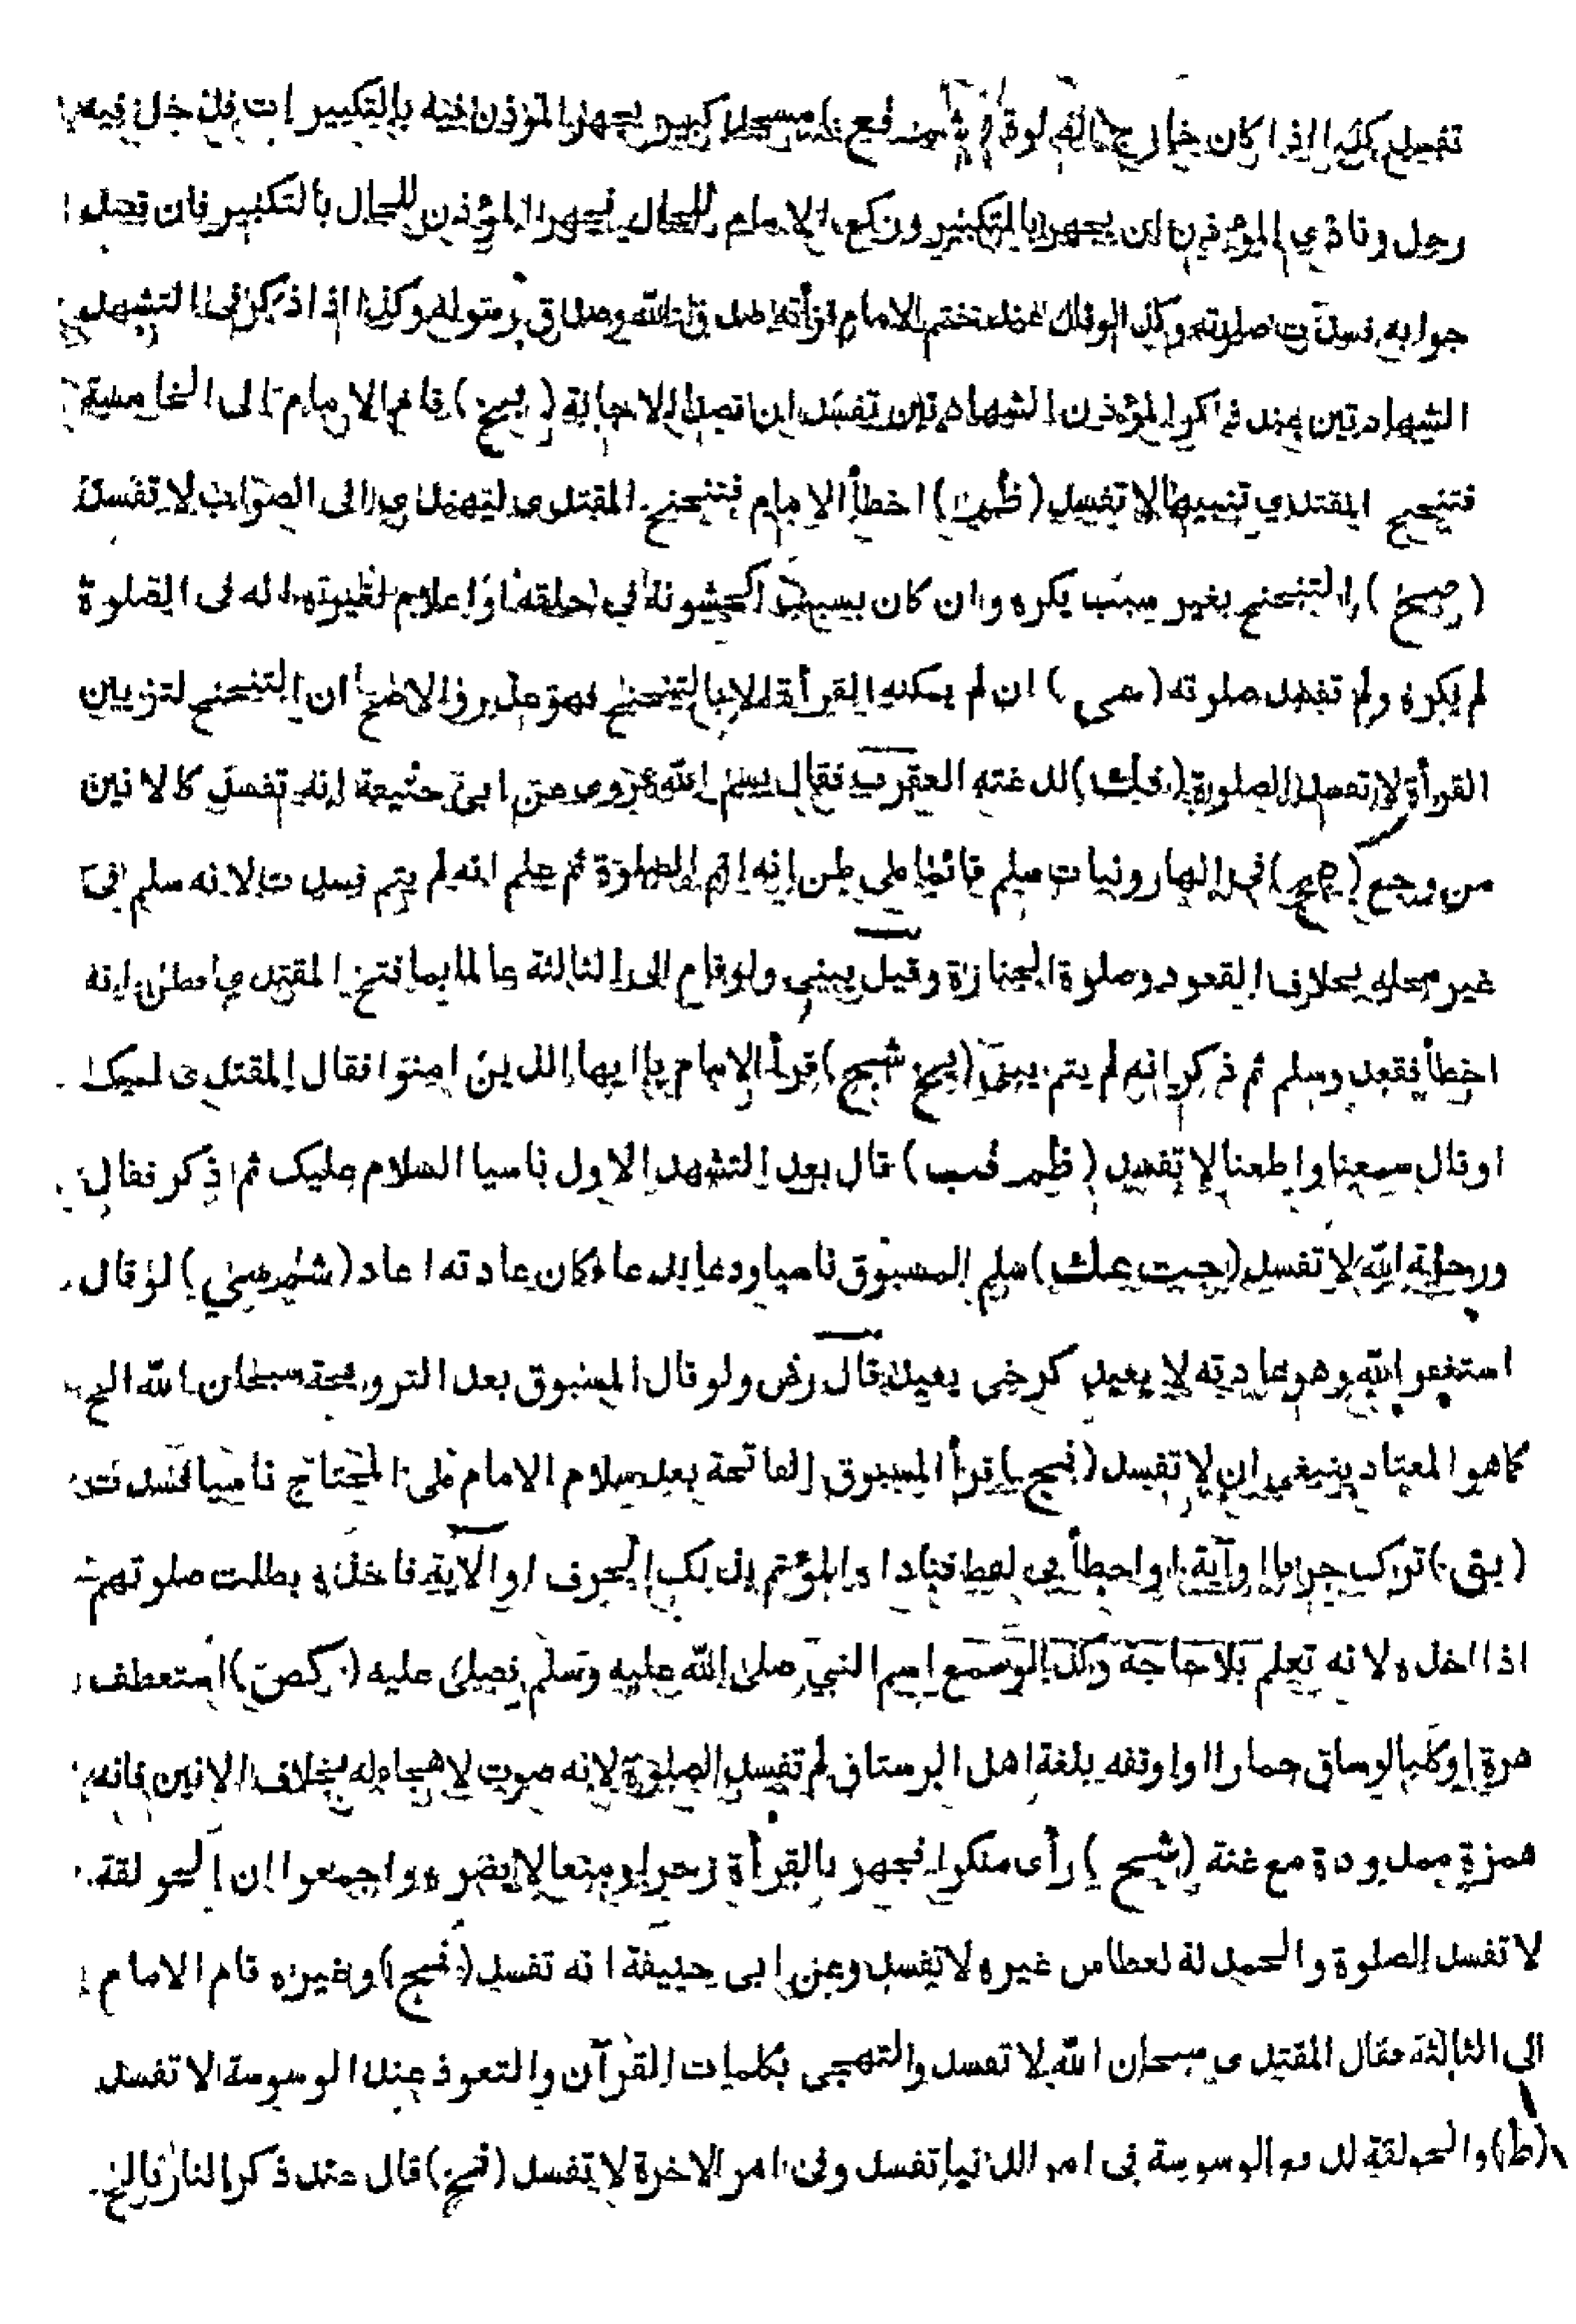 تفسد كذا اذا كان خارج الصلوة مسجد كبير يجهر المؤذن فيه بالتكبيرات فدخل فيه
رجل ونادى المؤذن ان يجهر بالتكبير وركع الامام للحال فجهر المؤذن للحال بالتكبير فان قصد
جوابه فسدت صلوته وكذا لو قال عند ختم الامام قرأته صدق الله وصدق رسوله وكذا اذا ذكر فى التشهد
الشهادتين عند ذكر المؤذن الشهادتين تفسد ان قصد الاجابة (بخ) قام الامام الى الخامسة
فتنحنح المقتدي تنبيها لا تفسد (ظم) اخطأ الامام فتنحنح المقتدى ليهتدي الى الصواب لا تفسد
(صبخ) التنحنح بغير سبب يكره وان كان بسبب الخشونة في حلقه او اعلام لغيره انه فى الصلوة
لم يكره ولم تفسد صلوته ان لم يمكنه القرأة الا بالتنحنح فهو عذر والاصح ان التنحنح لتزيين
القرأة لا تفسد الصلوة لدغته العقرب فقال بسم الله عزوى عن ابى حنيفة انه تفسد كالانين
من وجع فى الهارونيات سلم قائما على ظن انه اتم الصلوة ثم علم انه لم يتم فسدت لانه سلم فى
غير محله بخلاف القعود وصلوة الجنازة وقيل يبني ولو قام الى الثالثة عالما بما فتح المقتدي فظن انه
اخطأ فقعد وسلم ثم ذكر انه لم يتم يبنى (بخ شبح) قرأ الامام يا ايها الذين امنوا فقال المقتدى لبيك
او قال سمعنا واطعنا لا تفسد (ظم قب) قال بعد التشهد الاول ناسيا السلام عليك ثم ذكر فقال
ورحمة الله لا تفسد (جت عك) سلم المسبوق ناسيا ودعا بدعاء كان عادته اعاد لو قال
استغفر الله وهو عادته لا يعيد كرخى يعيد قال رض ولو قال المسبوق بعد الترويحة سبحان الله الخ
كما هو المعتاد ينبغى ان لا تفسد (فبج) قرأ المسبوق الفاتحة بعد سلام الامام على المحتاج ناسيا فسدت
(بق) ترك حرفا او آية او اخطأ فى لفظ فناداه المؤتم بذلك الحرف او الآية فاخذه بطلت صلوتهم
اذا اخذه لانه تعلم بلا حاجة وكذا لو سمع اسم النبي صلى الله عليه وسلم فصلى عليه (كص) استعطف
هرة او كلبا او ساق حمارا او اوقفه بلغة اهل الرستاق لم تفسد الصلوة لانه صوت لا هجاء له بخلاف الانين فانه
همزة ممدودة مع غنة (شبح) رأى منكرا فجهر بالقرأة زجرا ومنعا لا يضره واجمعوا ان الحولقة
لا تفسد الصلوة والحمدلة لعطاس غيره لا تفسد وعن ابى حنيفة انه تفسد (فبج) وغيره قام الامام
الى الثالثة فقال المقتدى سبحان الله لا تفسد والتهجى بكلمات القرآن والتعوذ عند الوسوسة لا تفسد
(ط) والحولقة لدفع الوسوسة فى امر الدنيا تفسد وفى امر الاخرة لا تفسد قال عند ذكر النار